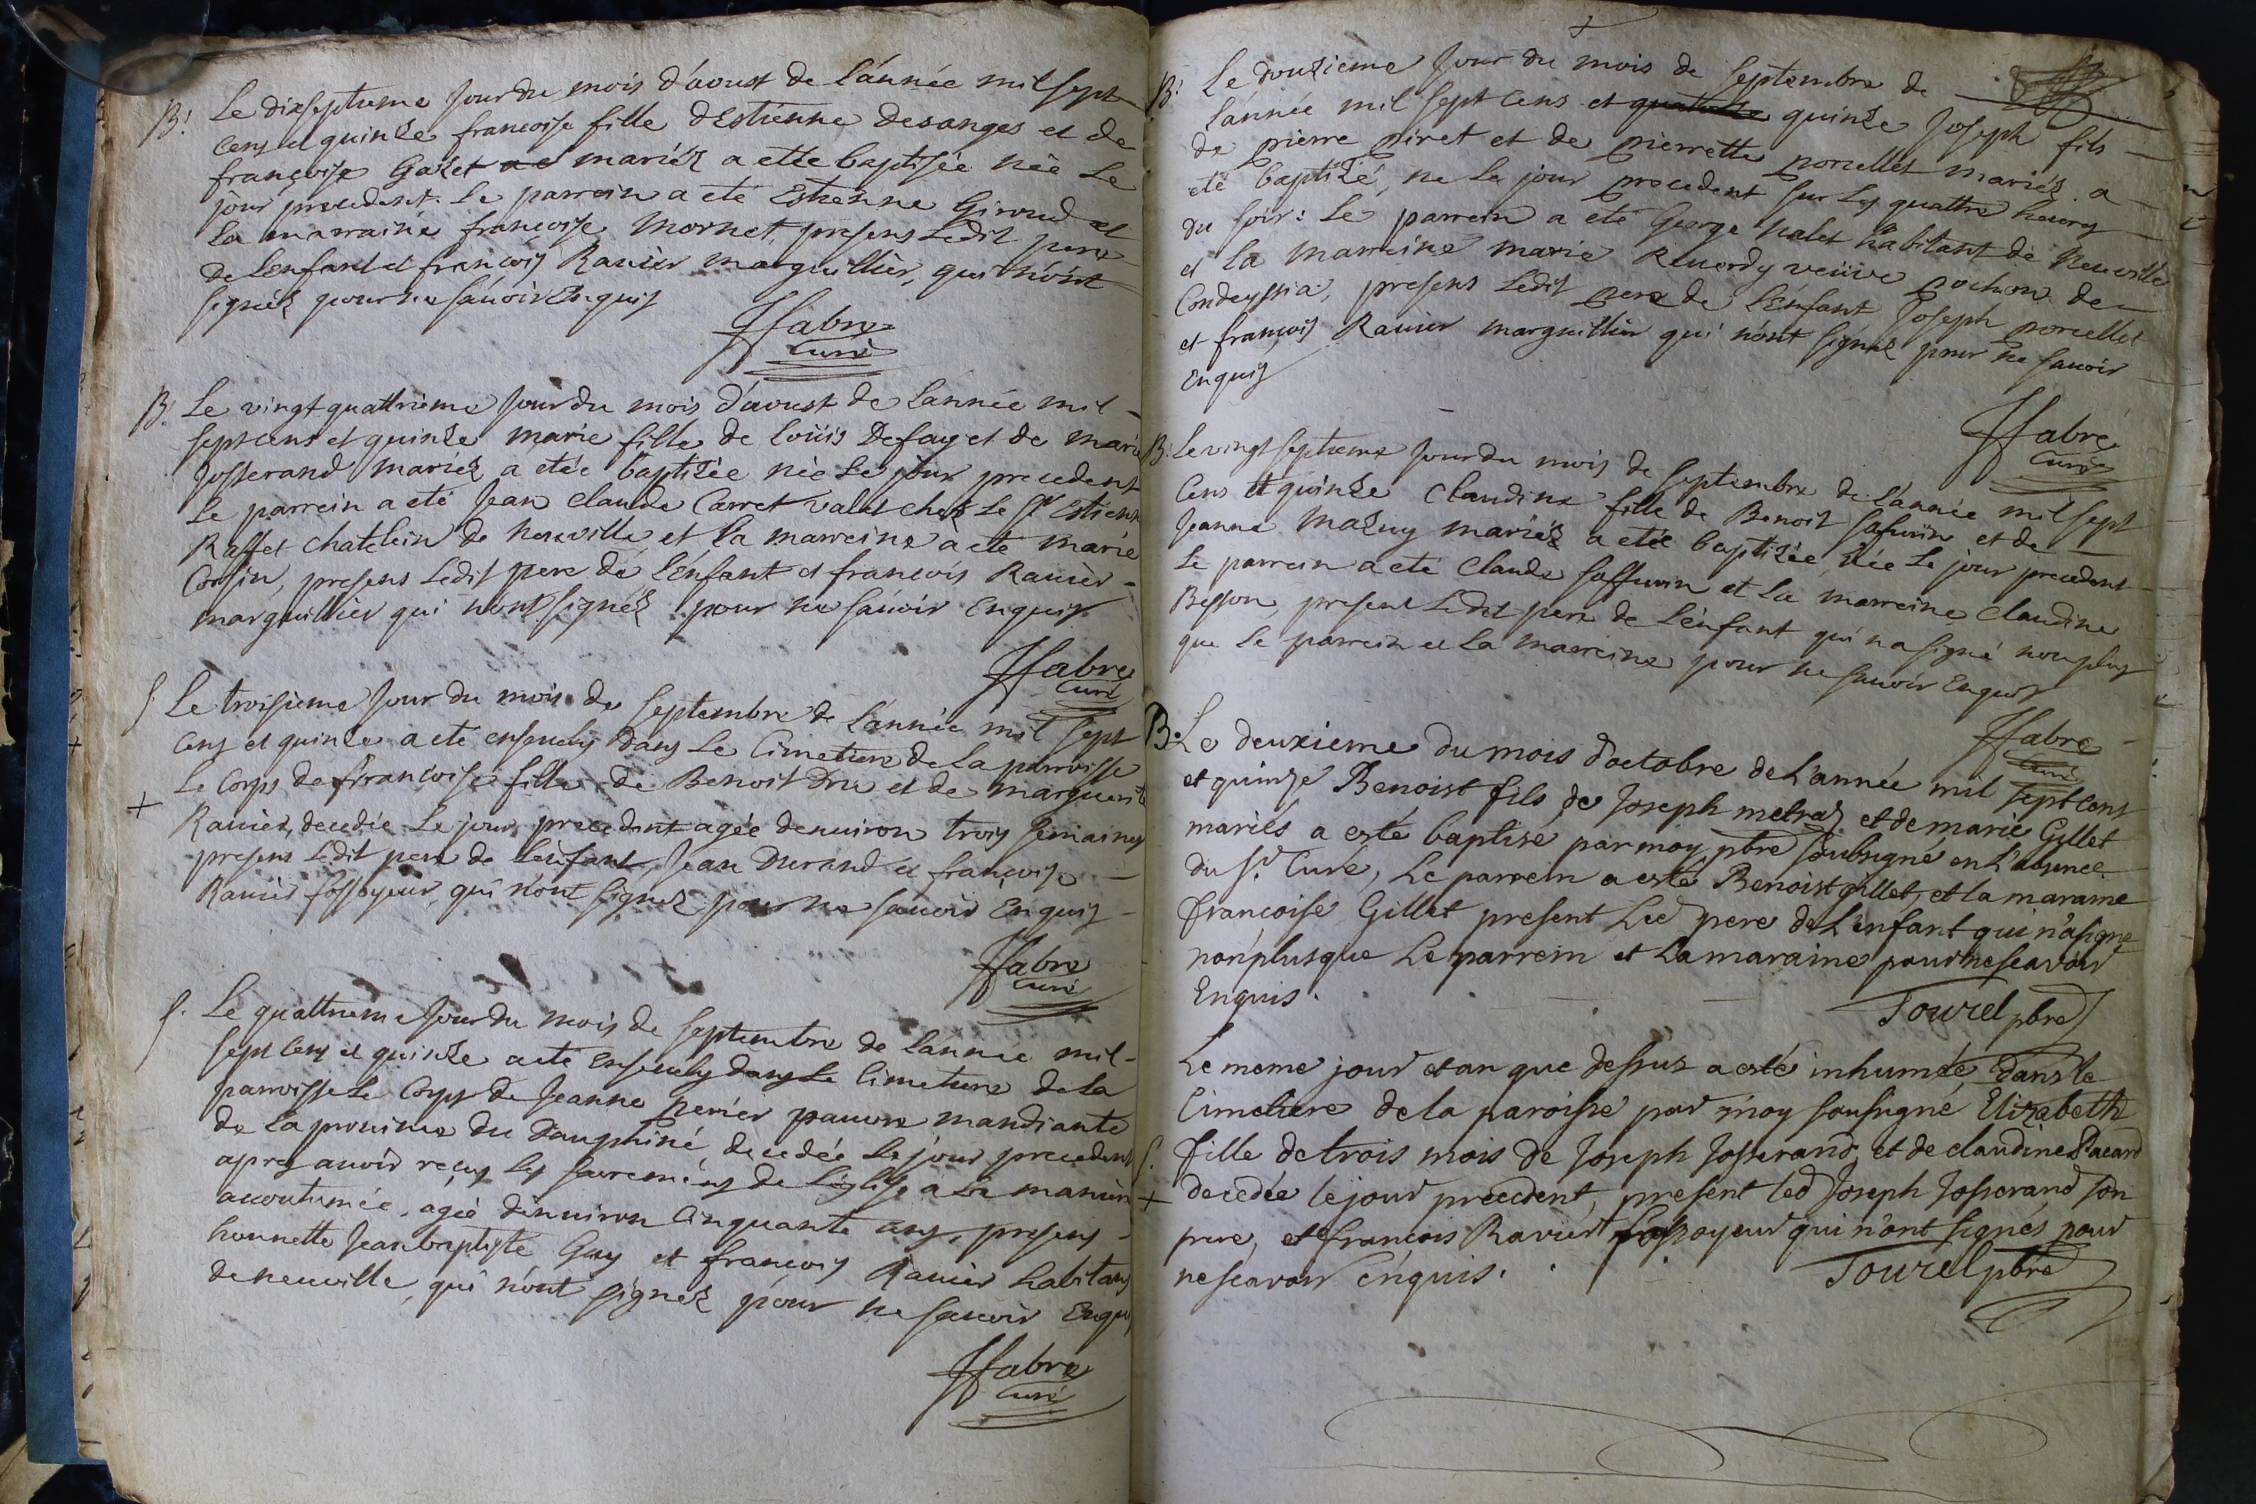 B. Le dixseptieme Jour du mois d'aoust de L'année mil sept
Cens et quinze francoise fille d'Estienne Desanges et de
françoise Gazet mariéz a etté baptisée née Le
jour precedent. Le parrein a eté Estienne Giroud et
La marraine françoise Mornet, presens Ledit pere
de L'enfant et françois Ravier marguillier, qui n'ont
signéz pour ne sáuoir Enquis
JFabre
Curé
B. Le vingt quattrieme Jour du mois d'aoust de L'année mil
sept cens et quinze marie fille de Loüis Defay et de marie
Josserand mariéz a etée baptizée née Le jour precedent
Le parrein a eté Jean claude Carret valet chez Le Sr Estienne
Raffet chatelein de neuville et La marreine a eté marie
presens Ledit pere de L'énfant et françois Ravier
marguillier qui n'ont signéz pour ne sáuoir Enquis
JFabre
Curé
S Le troisieme Jour du mois de septembre de L'année mil sept
Cens et quinze a eté ensevely dans Le Cimetiere de La parroisse
Le Corps de françoise fille de Benoit Dru et de marguerite
+ Ravier, decedée Le jour precedent agée d'enuiron trois semaines
presens Ledit pere de L'enfant, Jean Durand et françois
Ravier fossoyeur, qui n'ont signez pour ne sauoir Enquis
JFabre
Curé
S. Le quattrieme Jour du mois de septembre de L'année mil
sept Cens et quinze a eté Ensevely dans Le Cimetiere de La
parroisse Le Corps de Jeanne perier pauvre mandiante
de La prouince du Dauphiné, decedée Le jour precedent
apres auoir reçus Les sacremens de L'églisse a La maniere
accoutumée, agée d'enuiron Cinquante ans, presens
honnette Jean baptiste Guy et françois Ravier habitans
de neuville, qui n'ont signez pour ne sauoir Enquis
JFabre
Curé
+
B. Le douzieme Jour du mois de septembre de
L'année mil sept cens et quatorze quinze Joseph fils
de pierre piret et de pierrette porcellet mariéz a
eté baptizé, né Le jour precedent sur Les quattre heures
du soir: Le parrein a eté George valet habitant de Neuville
et La marreine marie Reverdy veuve pochon de
Condeyssia, presens Ledit pere de L'énfant Joseph porcellet
et françois Ravier marguillier qui n'ont signez pour ne sauoir
Enquis
JFabre
Curé
B. Le vingt septieme Jour du mois de septembre de L'année mil sept
Cens et quinze Claudine fille de Benoit saffurin et de
Jeanne Mazuy mariéz a etée baptizée, née Le jour precedent
Le parrein a eté Claude saffurin et La marreine Claudine
Besson, present Ledit pere de L'énfant qui n'a signé non plus
que Le parrein et La marreine pour ne sauoir Enquis
JFabre
Curé
B. Le deuxieme du mois d'octobre de L'année mil sept cens
et quinze Benoist fils de Joseph metraz et de marie Gillet
mariés a esté baptisé par moy pbre soubsigné en L'absence
du Sr. Curé, Le parrein a esté Benoist gillet, et la maraine
françoise Gillet present Led pere de L'enfant qui n'a signe
non plus que Le parrein et La maraine pour ne scavoir
Enquis.
Tourel pbre
Le meme jour et an que dessus a esté inhumée dans le
Cimetiere de la paroisse par moy sousigné Elizabeth
S. fille de trois mois de Joseph Josserand, et de claudine Pacard
+ decedée le jour precedent, present led Joseph Josserand son
pere, et françois Ravier fossoyeur qui n'ont signés pour
ne scavoir enquis.
Tourel pbre